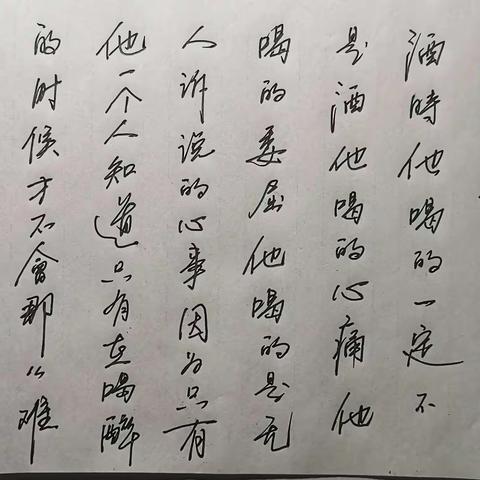 酒時他喝的一定不
是酒他喝的心痛他
喝的委屈他喝的是无
人诉说的心事因为只有
他一个人知道只有在喝醉
的时候才不會那么难